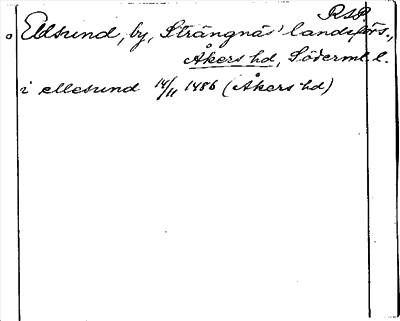 R.s.P.
Eldsund, by, Strängnäs' landsförs.,
Åkers hd, Söderml. l.
i ellesund 14/11 1486 (Åkers hd)